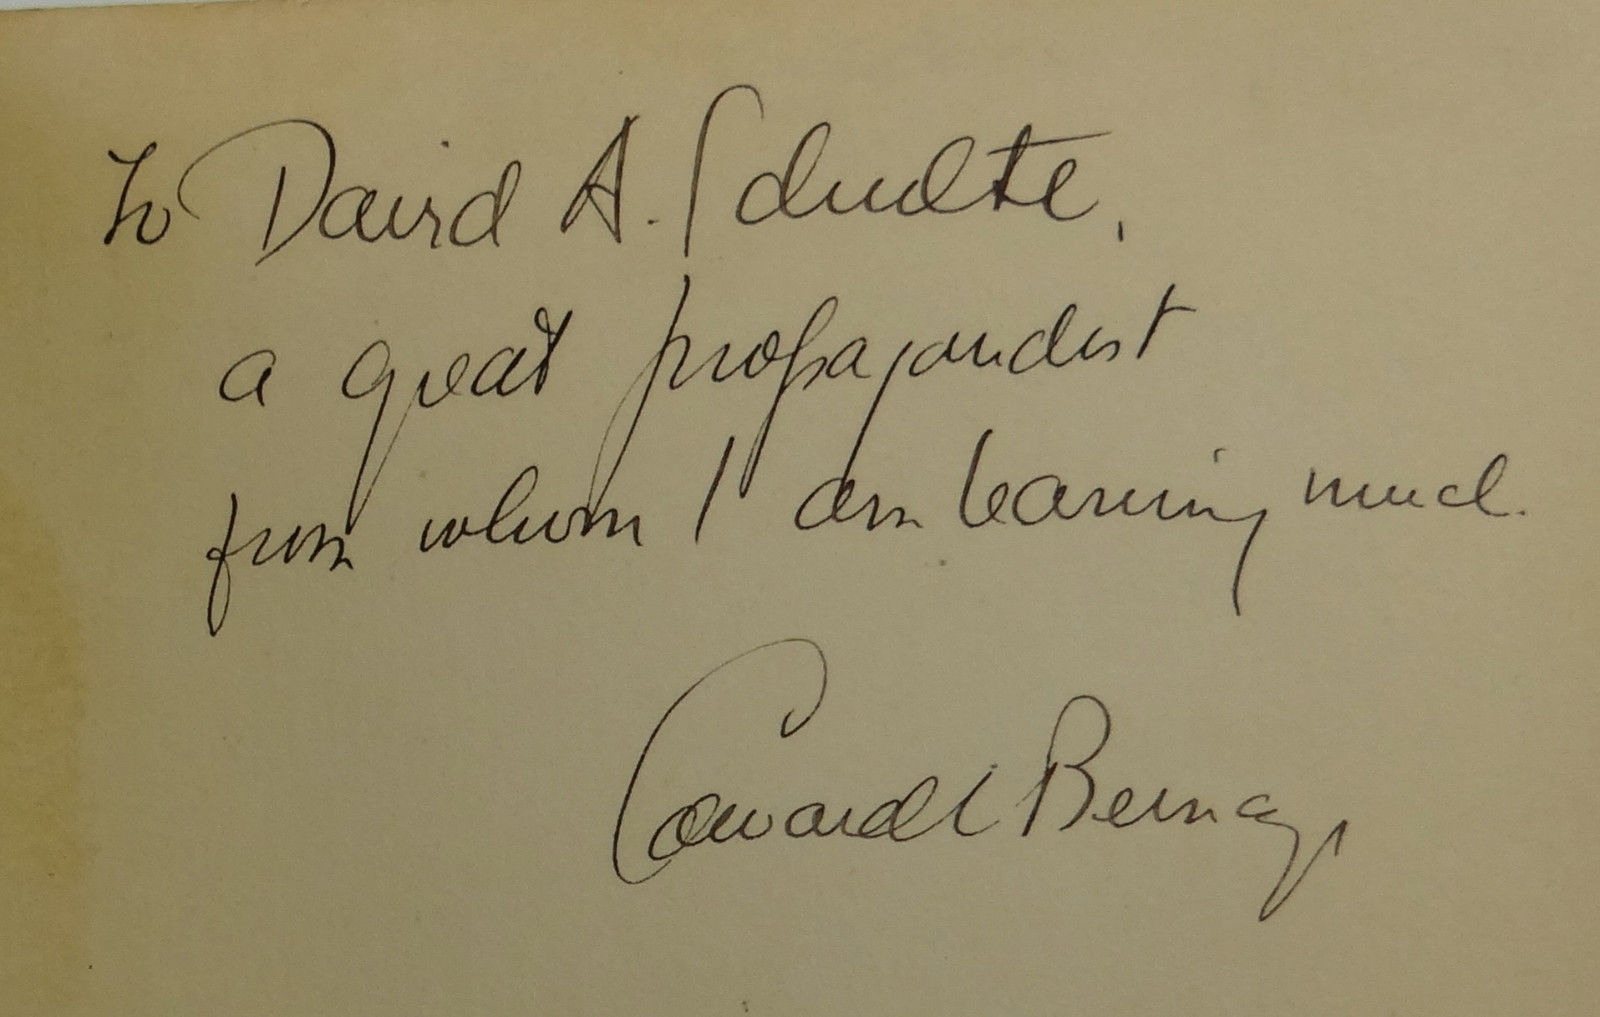 To David A. Schulte,
a great propagandist
from whom I am learning much.
Edward L Bernays